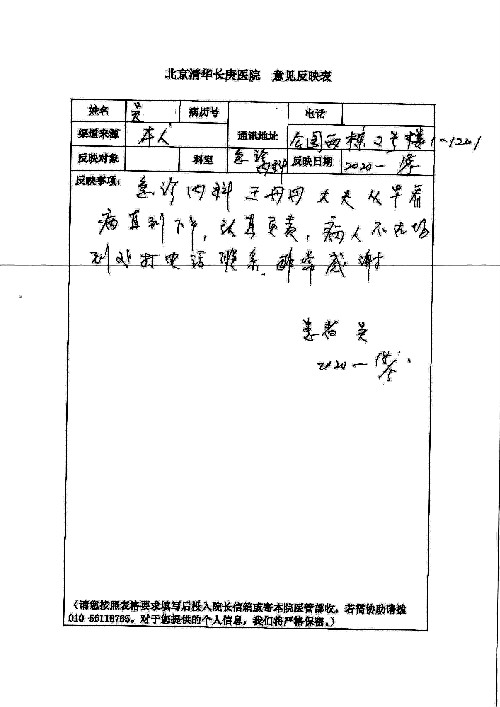 北京清华长庚医院 意见反映表
姓名 吴 病历号 电话
渠道来源 本人 通讯地址 2号楼1-1201
反映对象 科室 急诊内科 反映日期 2020-
反映事项: 急诊内科 王丹丹 大夫从早看
病直到下午,认真负责,病人不在场
到处打电话联系,非常感谢
患者 吴
2020-
(请您按照表格要求填写后投入院长信箱或寄本院医管部收,若需协助请拨
010-56118765,对于您提供的个人信息,我们将严格保密。)